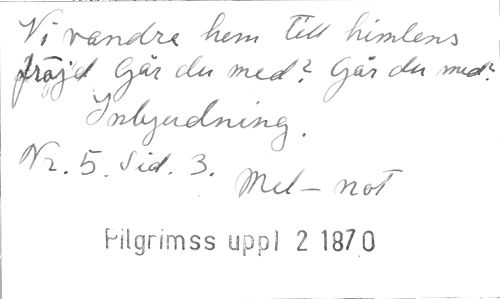 Vi vandra hem till himlens
fröjd Går du med? Går du med?
Inbjudning.
Nr. 5. Sid. 3.
Mel-not
Pilgrimss uppl 2 1870